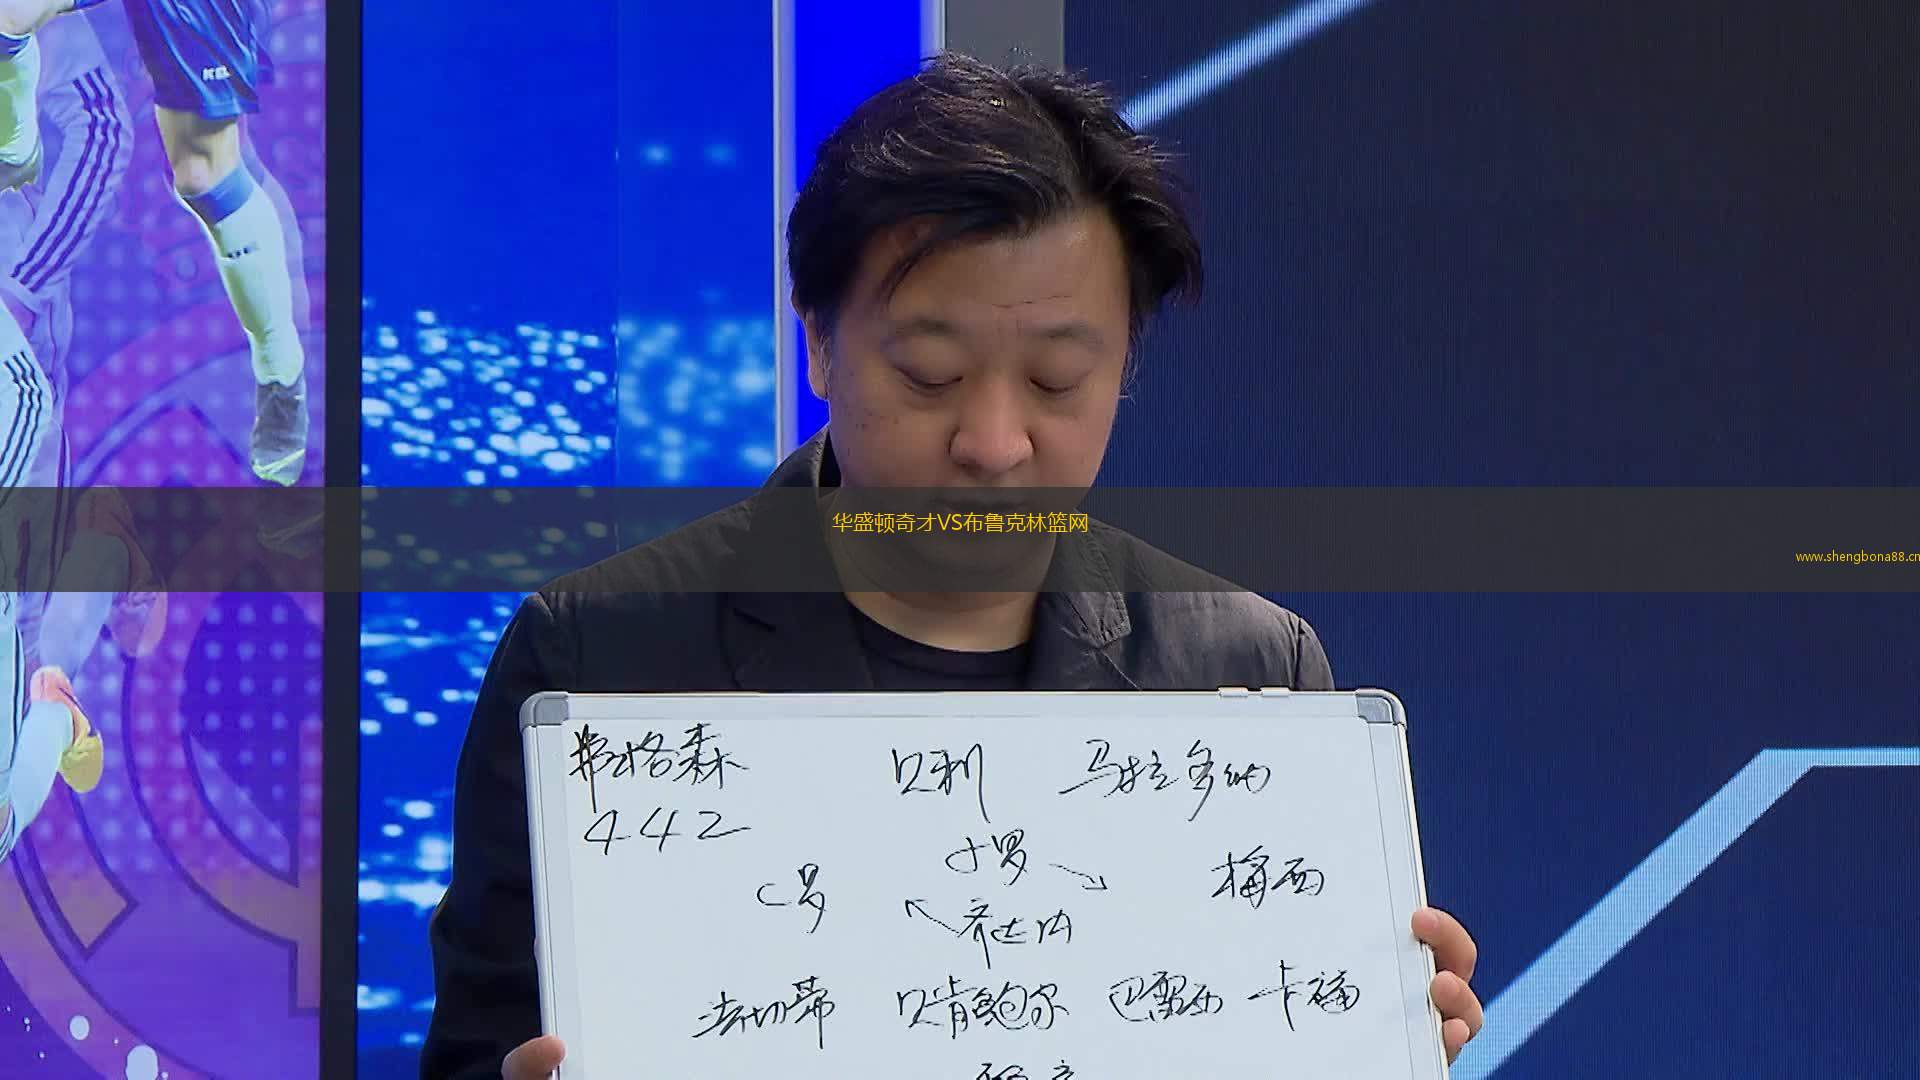 华盛顿奇才VS布鲁克林篮网
www.shengbona88.cn
弗格森 贝利 马拉多纳
442
小罗
C罗 梅西
齐达内
法切蒂 贝肯鲍尔 巴雷西 卡福